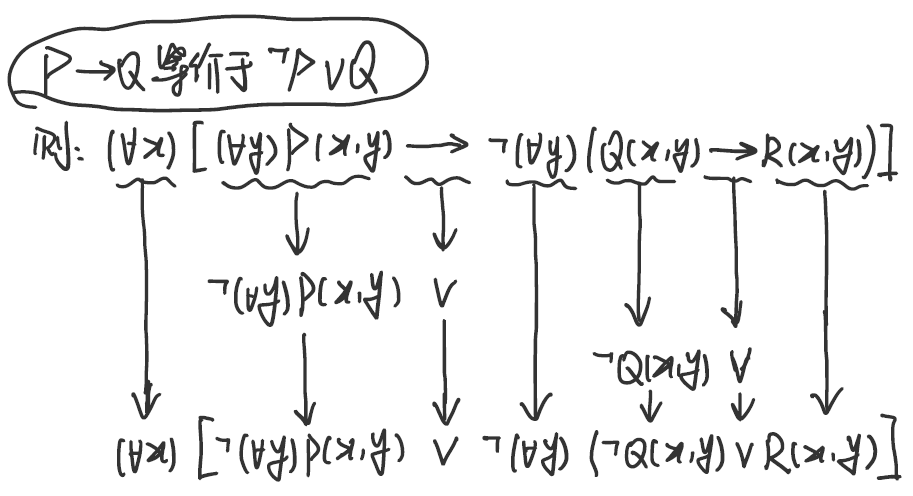 P→Q 等价于 ¬P∨Q
则: (∀x) [(∀y)P(x,y) → ¬(∀y)(Q(x,y) → R(x,y))]
¬(∀y)P(x,y) ∨
¬Q(x,y) ∨
(∀x) [¬(∀y)P(x,y) ∨ ¬(∀y) (¬Q(x,y) ∨ R(x,y)]